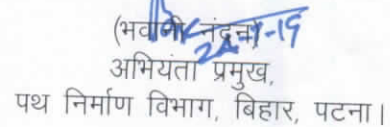 (भवानी नंदन)
24-7-19
अभियंता प्रमुख,
पथ निर्माण विभाग, बिहार, पटना।